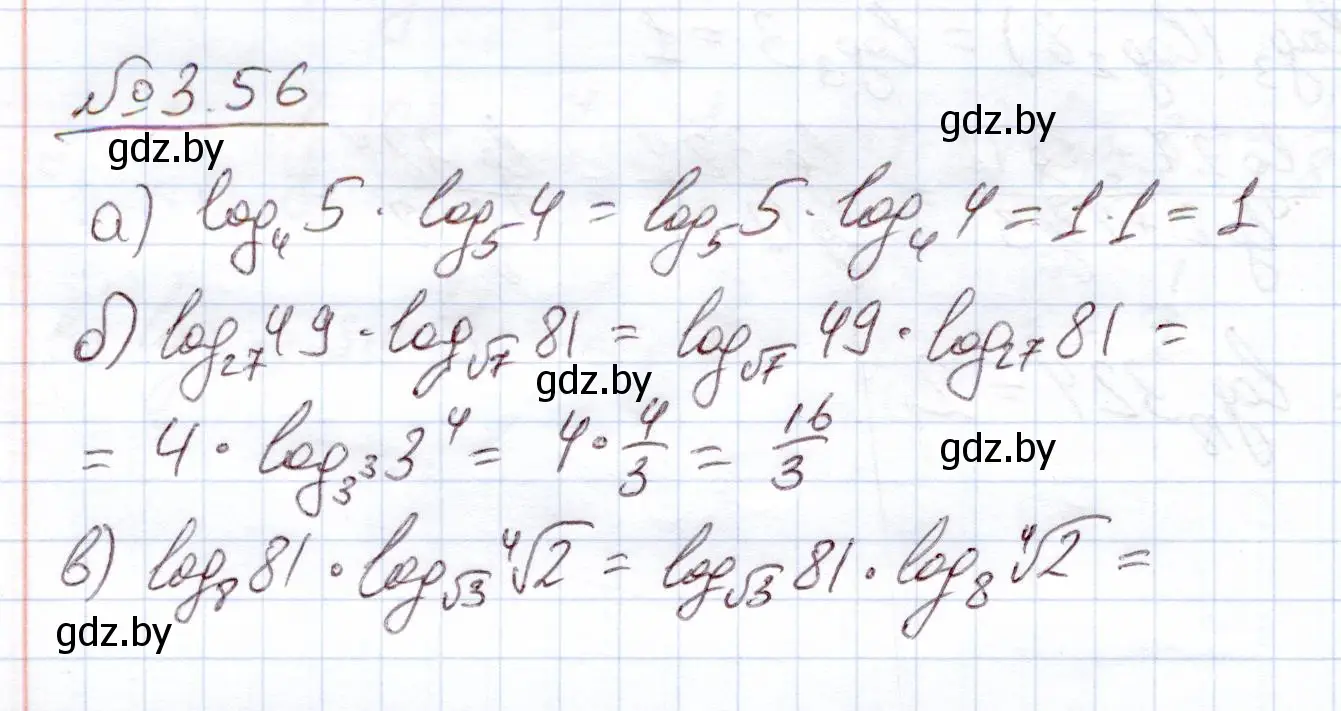 № 3.56
gdz.by
gdz.by
а) log₄5 · log₅4 = log₅5 · log₄4 = 1·1 = 1
б) log₂₇49 · log_√7 81 = log_√7 49 · log₂₇81 =
gdz.by
= 4 · log_3³ 3⁴ = 4 · 4/3 = 16/3
gdz.by
в) log₈81 · log_√3 ⁴√2 = log_√3 81 · log₈ ⁴√2 =
gdz.by